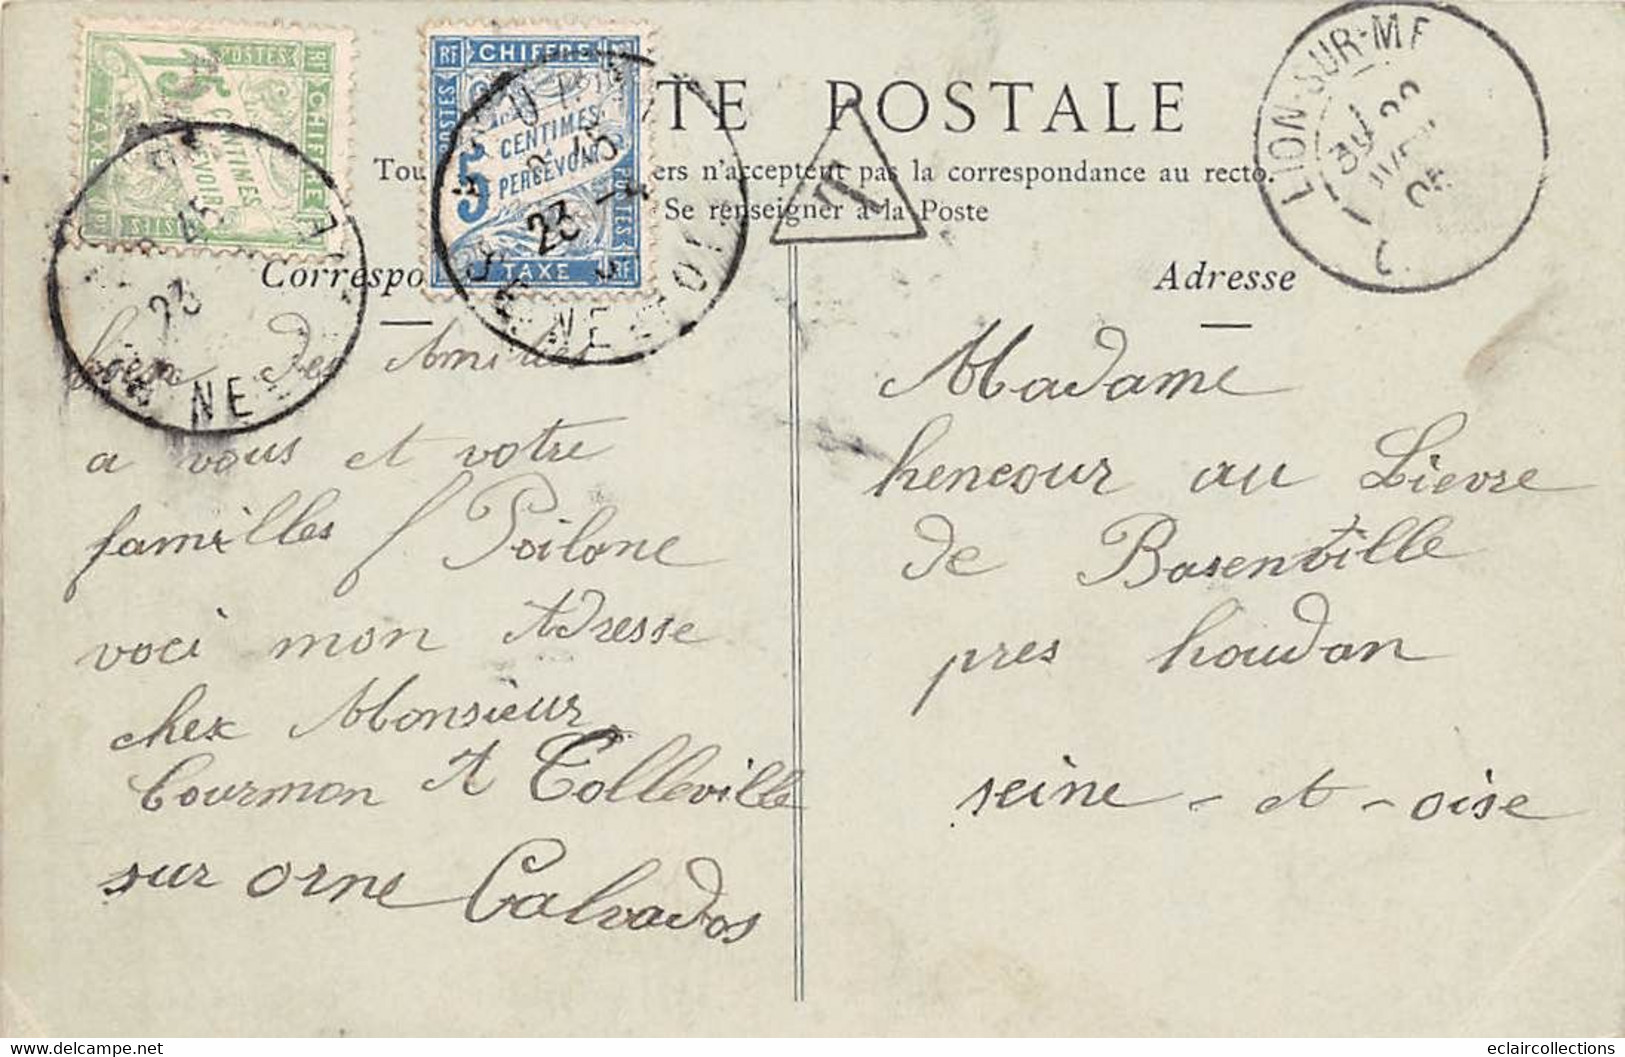 POSTES
RF
15
CENTIMES
CHIFFRE
TAXE
RF CHIFFRE
POSTES
CENTIMES
À
5 PERCEVOIR
POSTES
TAXE RF
23
NE
23
NE
TE POSTALE
LION-SUR-ME
T
Tou ers n'acceptent pas la correspondance au recto.
Se renseigner à la Poste
Correspo
Adresse
des Amities
a vous et votre
familles Poilane
voci mon Adresse
chex Monsieur
Courmon A Colleville
sur orne Calvados
Madame
hencour au Lievre
de Basenville
pres houdan
seine - et - oise
https://www.delcampe.net
eclaircollections